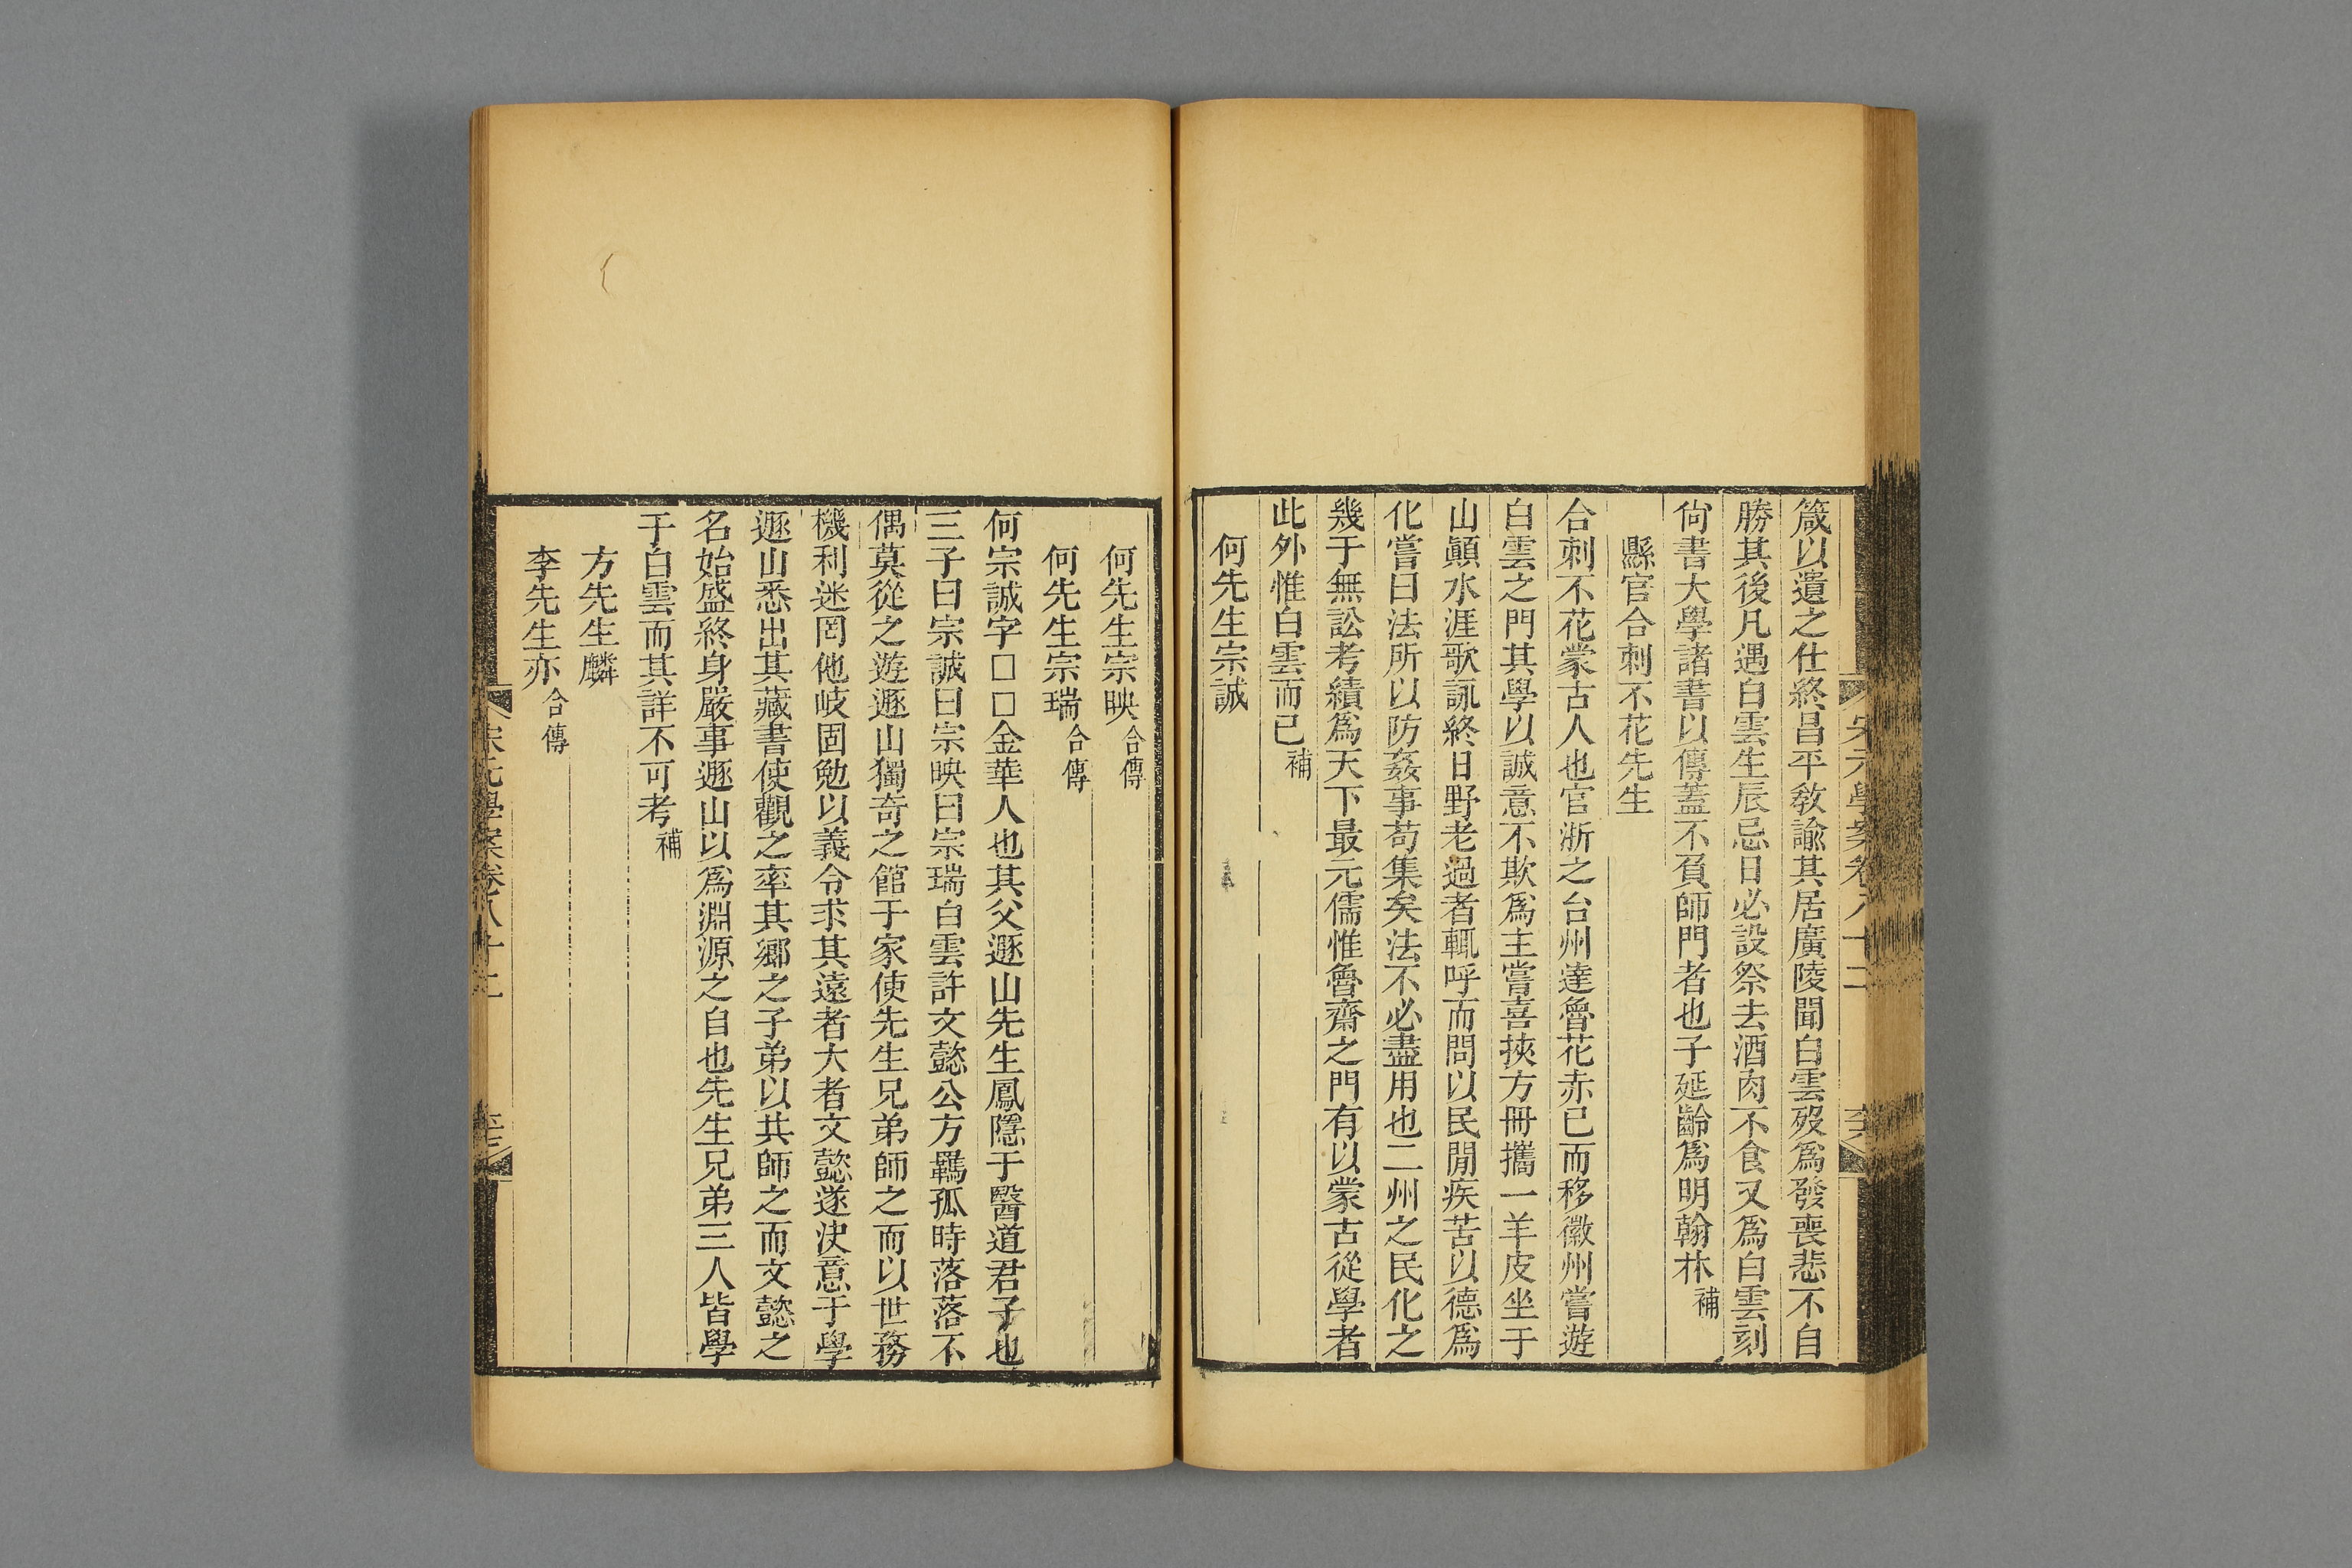 箴以遺之仕終昌平敎諭其居廣陵聞白雲歿爲發喪悲不自
勝其後凡遇白雲生辰忌日必設祭去酒肉不食又爲白雲刻
尙書大學諸書以傳蓋不負師門者也子延齡爲明翰林補
縣官合刺不花先生
合刺不花蒙古人也官浙之台州達魯花赤已而移徽州嘗遊
白雲之門其學以誠意不欺爲主嘗喜挾方冊攜一羊皮坐于
山顚水涯歌詠終日野老過者輒呼而問以民閒疾苦以德爲
化嘗曰法所以防姦事苟集矣法不必盡用也二州之民化之
幾于無訟考績爲天下最元儒惟魯齋之門有以蒙古從學者
此外惟白雲而已補
何先生宗誠
何先生宗映合傳
何先生宗瑞合傳
何宗誠字□□金華人也其父遯山先生鳳隱于醫道君子也
三子曰宗誠曰宗映曰宗瑞白雲許文懿公方羈孤時落落不
偶莫從之遊遯山獨奇之館于家使先生兄弟師之而以世務
機利迷罔他岐固勉以義令求其遠者大者文懿遂決意于學
遯山悉出其藏書使觀之率其鄉之子弟以共師之而文懿之
名始盛終身嚴事遯山以爲淵源之自也先生兄弟三人皆學
于白雲而其詳不可考補
方先生麟
李先生亦合傳
宋元學案卷八十二